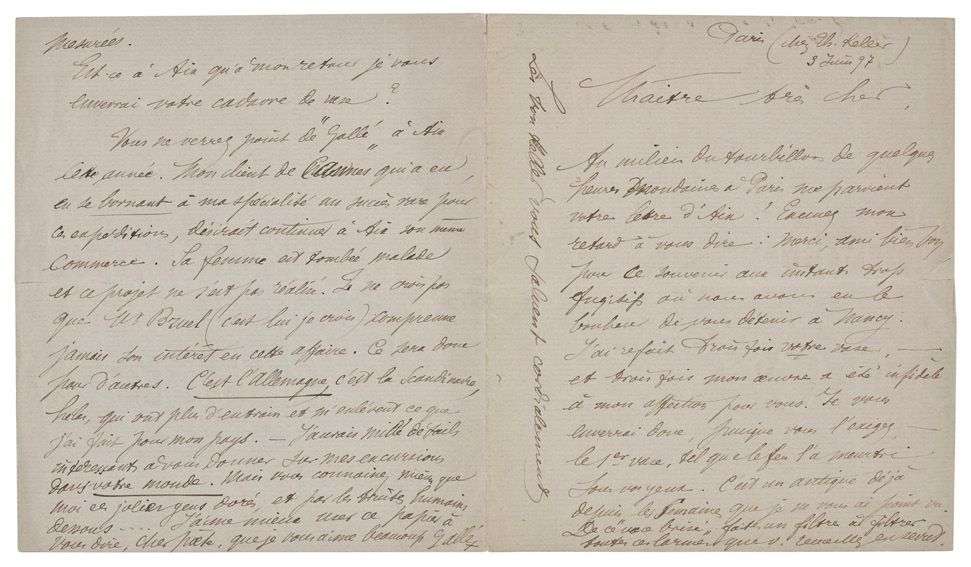 Paris (chez Ch. Keller)
3 Juin 97
Maître très cher,
Au milieu du tourbillon de quelques
heures mondaines à Paris me parvient
votre lettre d'Aix ! Excusez mon
retard à vous dire : Merci, ami bien bon,
pour ce souvenir aux instants trop
fugitifs où nous avons eu le
bonheur de vous détenir à Nancy.
J'ai refait trois fois votre vase, —
et trois fois mon œuvre a été infidèle
à mon affection pour vous. Je vous
enverrai donc, puisque vous l'exigez, —
le 1er vase, tel que le feu l'a meurtri
sous vos yeux. C'est un antique déjà
depuis la semaine que je ne vous ai point vu.
De ce "vase brisé" faites un filtre à filtrer
toutes ces larmes, que v. recueillez en
Les bons Keller vous saluent cordialement
mesurées.
Est-ce à Aix qu'à mon retour je vous
enverrai votre cadavre de vase ?
Vous ne verrez point de "Gallé" à Aix
cette année. Mon client de Cannes qui a eu,
en se bornant à ma spécialité un succès rare pour
ces expositions, désirait continuer à Aix son même
commerce. Sa femme est tombée malade
et ce projet ne s'est pas réalisé. Je ne crois pas
que Mr (c'est lui je crois) comprenne
jamais son intérêt en cette affaire. Ce sera donc
pour d'autres. C'est l'Allemagne, c'est la Scandinavie,
hélas, qui ont plus d'entrain et m'enlèvent ce que
j'ai fait pour mon pays. — J'aurais mille détails
intéressants à vous donner sur mes excursions
dans votre monde. Mais vous connaissez mieux que
moi ces jolies gens dorés, et pas les truites humains
dessous .... J'aime mieux user ce papier à
vous dire, cher poète, que je vous aime beaucoup Gallé